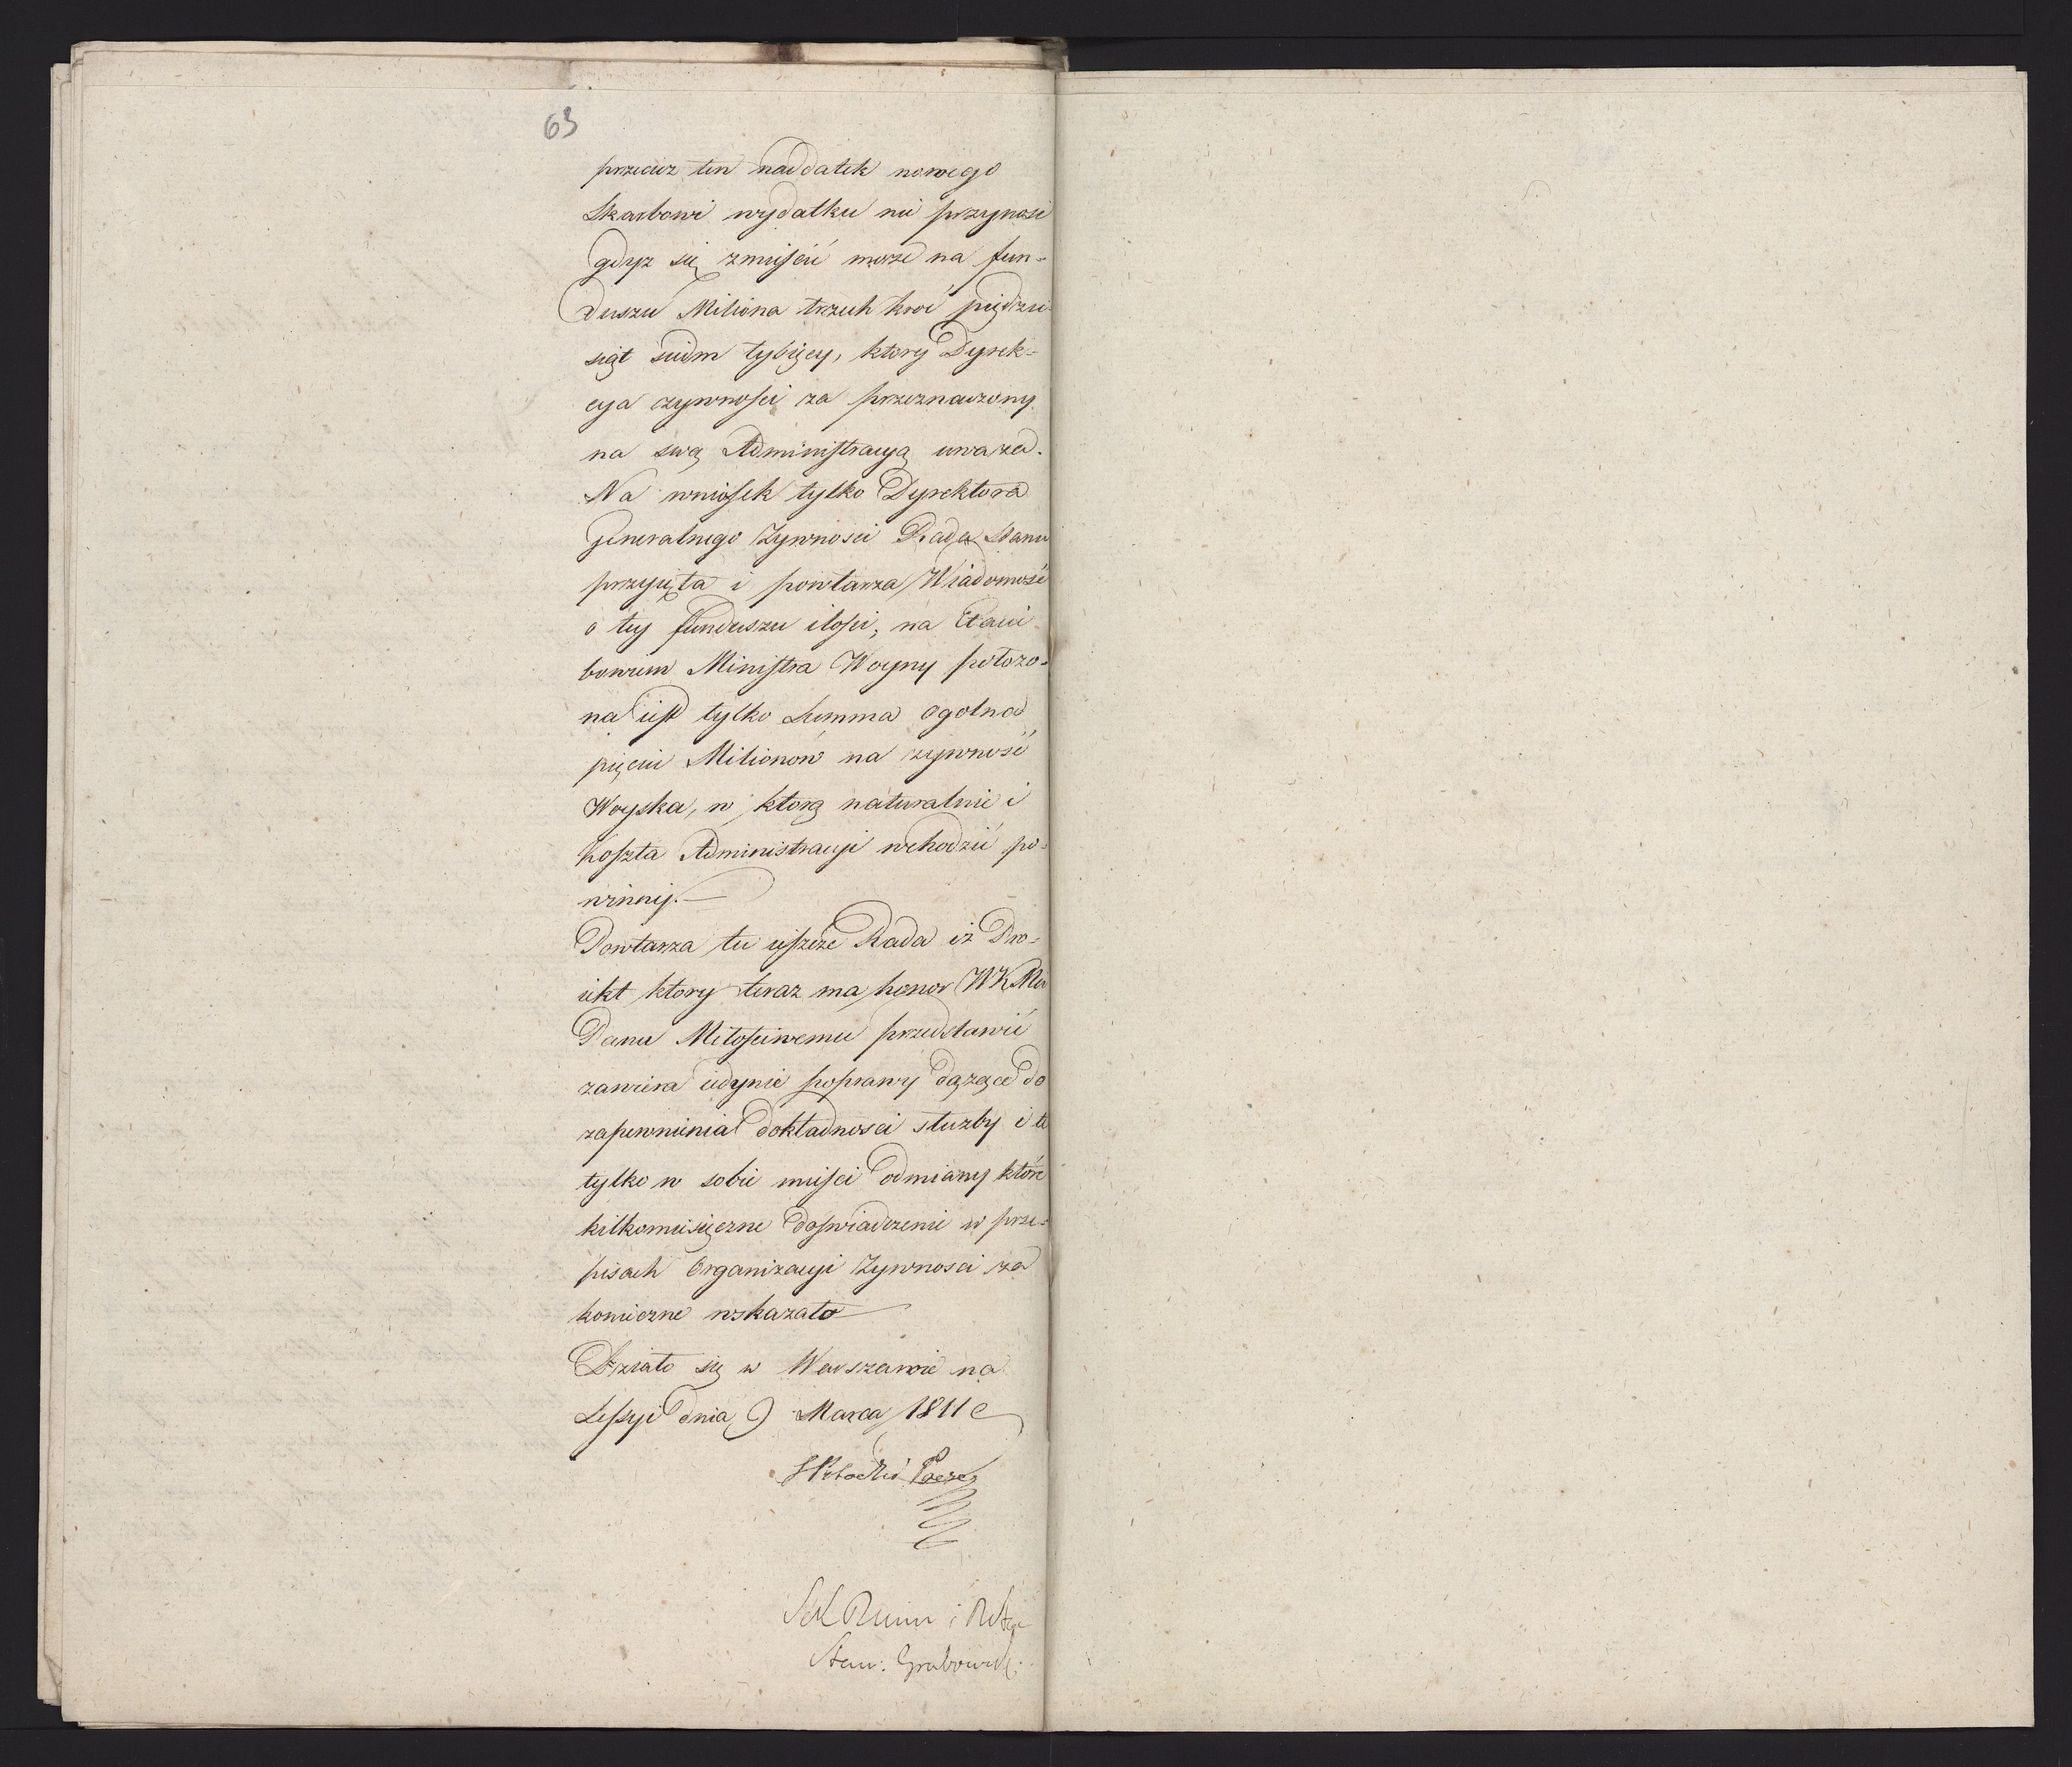 63
przeciez ten naddatek nowego
Skarbowi wydatku nie przynosi
gdyz się zmieścić może na fun=
duszu Miliona trzech kroć pięćdzie=
siąt siedm tysięcy, ktory Dyrek=
cya zywności za przeznaczony
na swą Administracyą uważa.
Na wniosek tylko Dyrektora
Generalnego Zywnosci Rada Stanu
przyięta i powtarza Wiadomość
o tey funduszu ilości, na Etacie
bowiem Ministra Woyny położo=
na iest tylko Summa ogolna
pięciu Milionów na zywność
Woyska, w ktorą naturalnie i
koszta Administracyi wchodzić po=
winny.
Powtarza tu ieszcze Rada iż Pro=
iekt ktory teraz ma honor WKMci
Panu Miłościwemu przedstawić
zawiera iedynie poprawy dążące do
zapewnienia dokładnosci służby i te
tylko w sobie mieści odmiany które
kilkomiesięczne doświadczenie w prze=
pisach Organizacyi Zywnosci za
konieczne wskazało
Działo się w Warszawie na
Sessyi dnia 9 Marca 1811
S Potocki Prezes
Stan: Grabowski